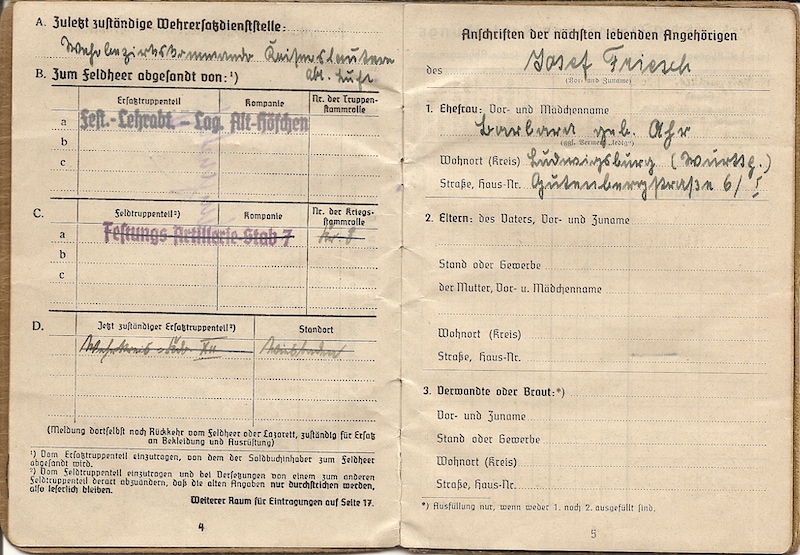 A. Zuletzt zuständige Wehrersatzdienststelle:
Wehrbezirkskommando Kaiserslautern
Abt. Luft
B. Zum Feldheer abgesandt von:¹)
Ersatztruppenteil Kompanie Nr. der Truppen-
stammrolle
a Fest.-Lehrabt. – Lag. Alt-Höfchen
b
c
C. Feldtruppenteil²) Kompanie Nr. der Kriegs-
stammrolle
a Festungs Artillerie-Stab 7 Nr. 8
b
c
D. Jetzt zuständiger Ersatztruppenteil²) Standort
Wehrkreis-Kdo XII Wiesbaden
(Meldung dortselbst nach Rückkehr vom Feldheer oder Lazarett, zuständig für Ersatz
an Bekleidung und Ausrüstung)
¹) Vom Ersatztruppenteil einzutragen, von dem der Soldbuchinhaber zum Feldheer
abgesandt wird.
²) Vom Feldtruppenteil einzutragen und bei Versetzungen von einem zum anderen
Feldtruppenteil derart abzuändern, daß die alten Angaben nur durchstrichen werden,
also leserlich bleiben.
Weiterer Raum für Eintragungen auf Seite 17.
4
Anschriften der nächsten lebenden Angehörigen
des Josef Friesch
(Vor- und Zuname)
1. Ehefrau: Vor- und Mädchenname
Barbara geb. Ahr
(ggf. Vermerk „ledig")
Wohnort (Kreis) Ludwigsburg (Württg.)
Straße, Haus-Nr. Gutenbergstraße 6/I
2. Eltern: des Vaters, Vor- und Zuname
Stand oder Gewerbe
der Mutter, Vor- u. Mädchenname
Wohnort (Kreis)
Straße, Haus-Nr.
3. Verwandte oder Braut:*)
Vor- und Zuname
Stand oder Gewerbe
Wohnort (Kreis)
Straße, Haus-Nr.
*) Ausfüllung nur, wenn weder 1. noch 2. ausgefüllt sind.
5